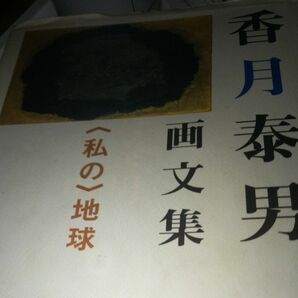 香月泰男
画文集
〈私の〉地球